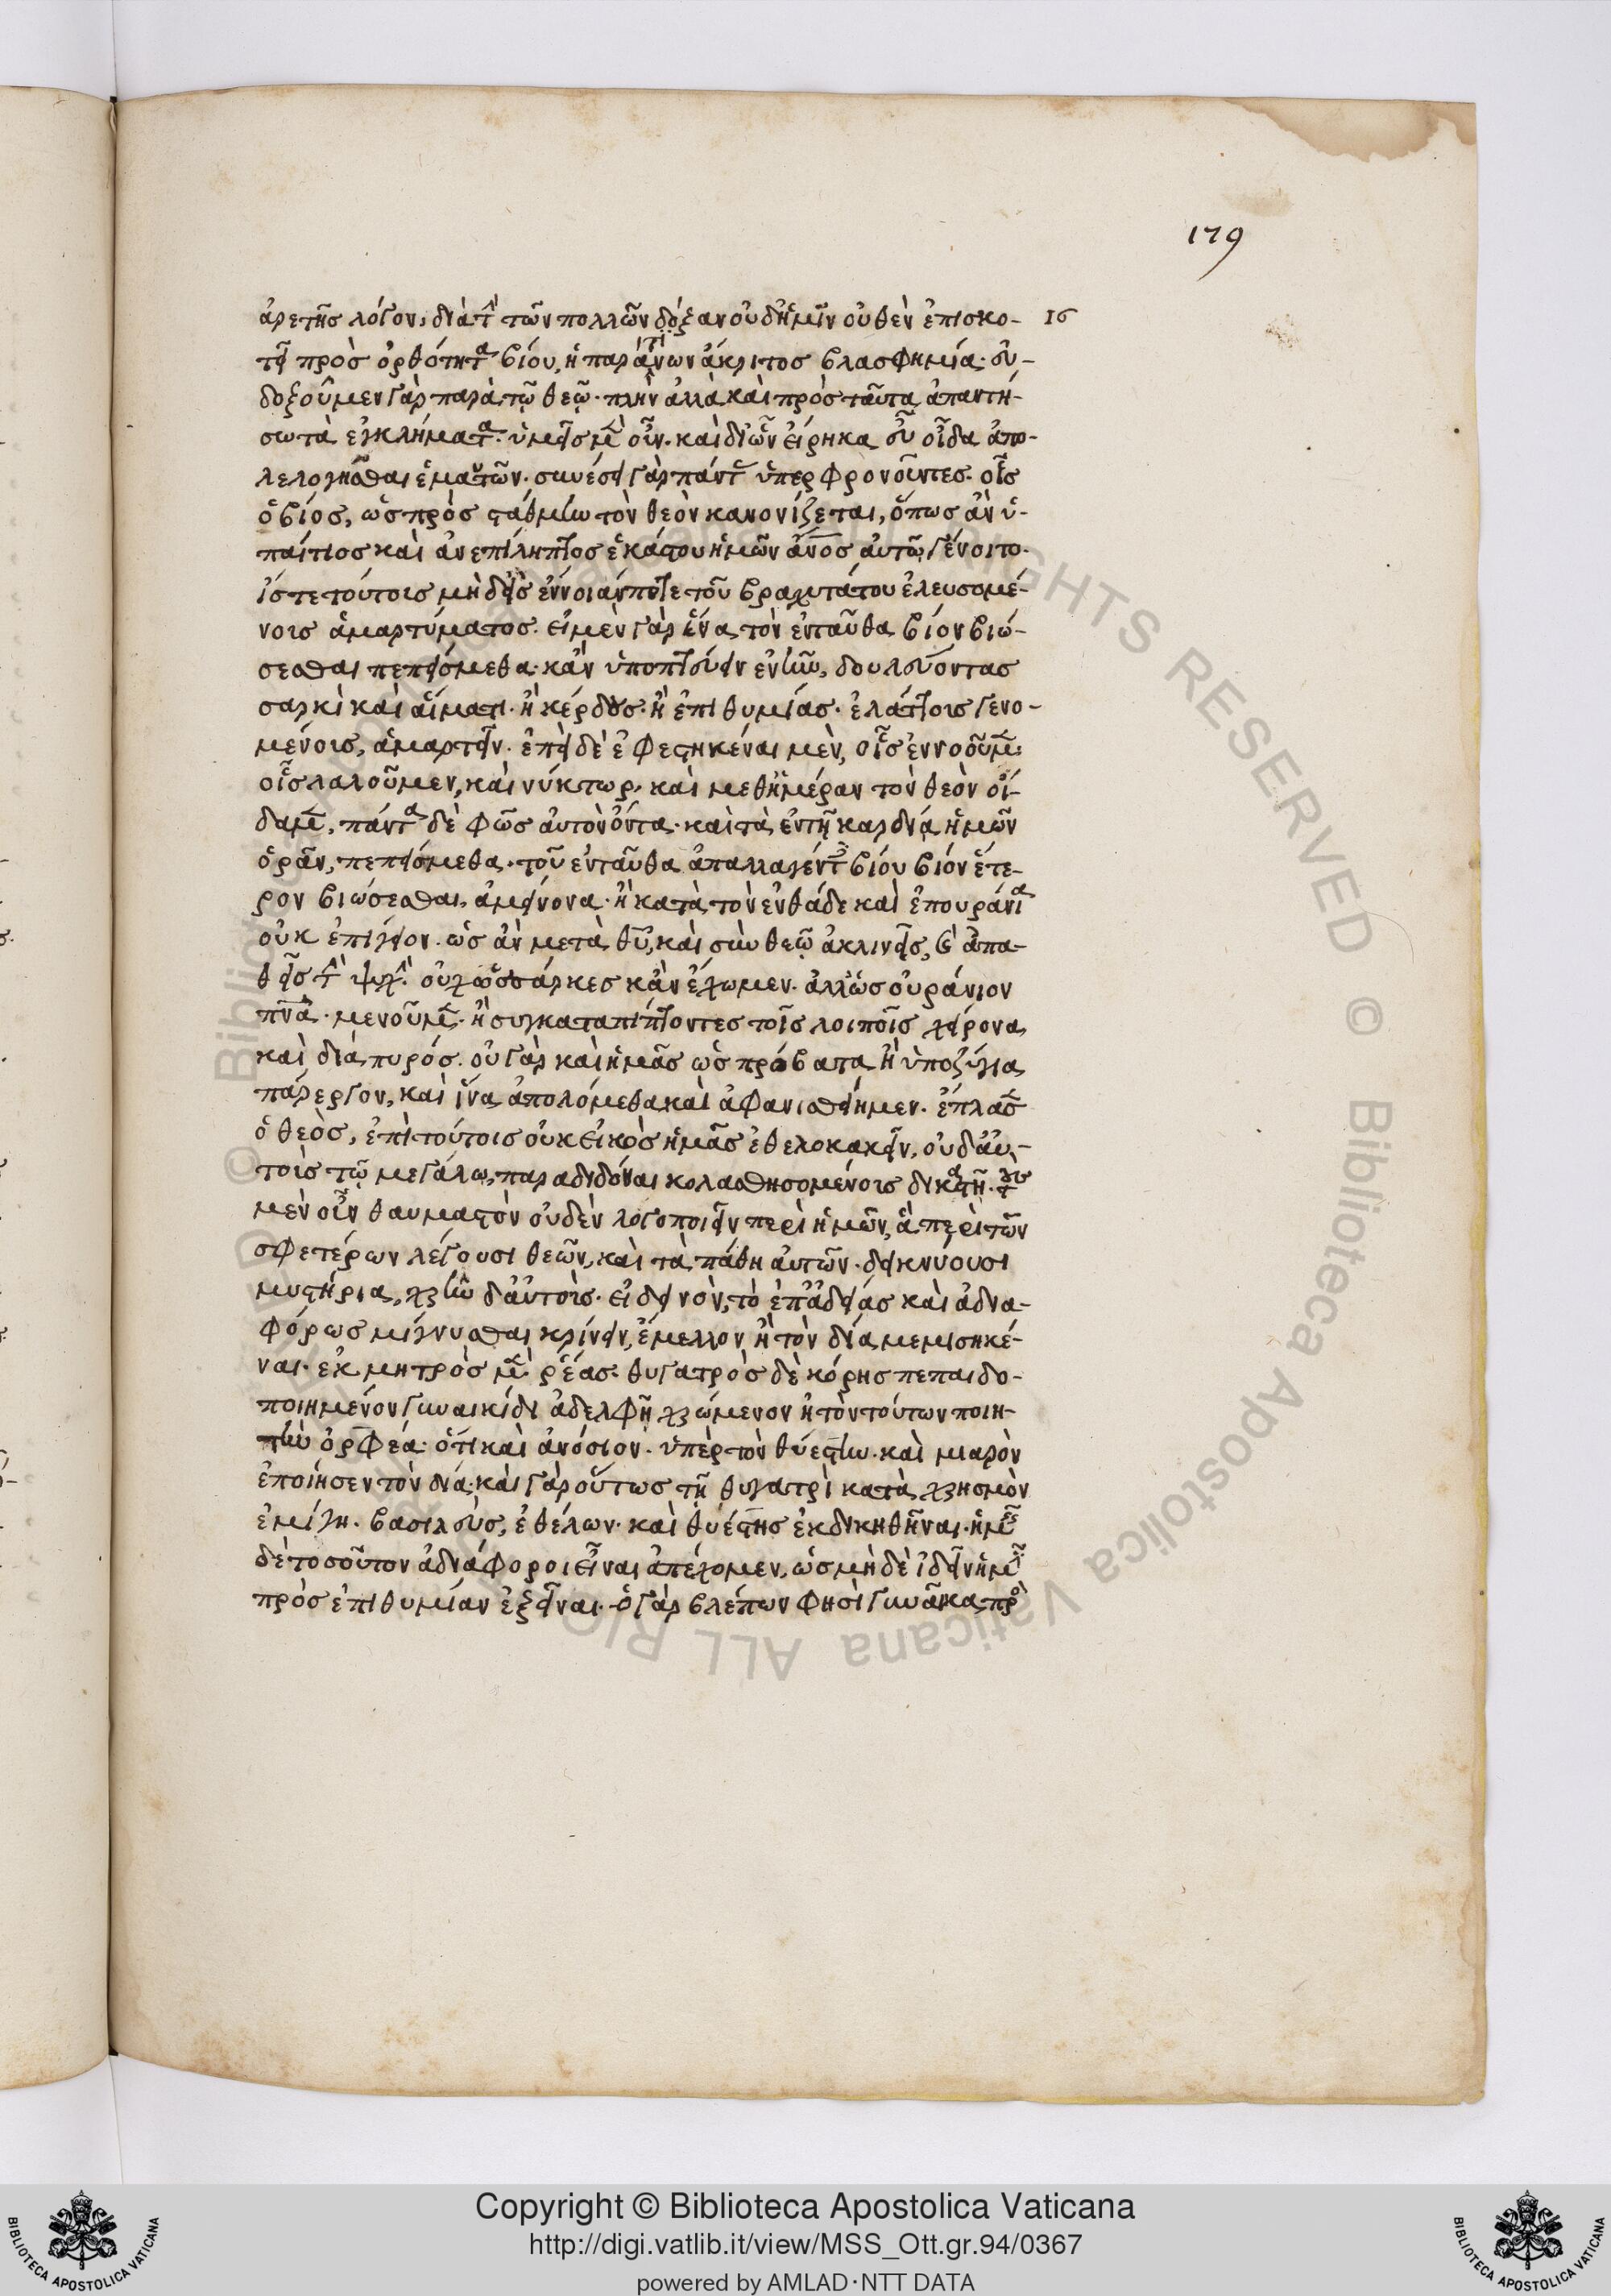 179
ἀρετῆς λόγον, διὰ τὴν τῶν πολλῶν δόξαν οὐδ' ἡμῖν οὐθὲν ἐπισκο- 16
τεῖ πρὸς ὀρθότητα βίου, ἡ παρά τινων ἄκριτος βλασφημία· εὐ-
δοξοῦμεν γὰρ παρὰ τῷ θεῷ· πλὴν ἀλλὰ καὶ πρὸς ταῦτα ἀπαντή-
σω τὰ ἐγκλήματα· ὑμεῖς μὲν οὖν· καὶ δι' ὧν εἴρηκα εὖ οἶδα ἀπο-
λελογῆσθαι ἐμαυτὸν· συνέσει γὰρ πάντας ὑπερφρονοῦντες· οἷς
ὁ βίος, ὡς πρὸς στάθμην τὸν θεὸν κανονίζεται, ὅπως ἂν ὑ-
παίτιος καὶ ἀνεπίληπτος ἑκάστου ἡμῶν ἄνος αὐτῷ γένοιτο·
ἴστε τούτοις μὴ δ' εἰς ἔννοιάν ποτε τοῦ βραχυτάτου ἐλευσομέ-
νοις ἁμαρτήματος. εἰ μὲν γὰρ ἕνα τὸν ἐνταῦθα βίον βιώ-
σεσθαι πεπείσμεθα· κἂν ὑποπτεύειν ἐνῆν, δουλεύοντας
σαρκὶ καὶ αἵματι· ἢ κέρδους· ἢ ἐπιθυμίας· ἐλάττοις γενο-
μένοις, ἁμαρτεῖν· ἐπεὶ δὲ ἐφεστηκέναι μὲν, οἷς ἐννοοῦμεν
οἷς λαλοῦμεν, καὶ νύκτωρ, καὶ μεθ' ἡμέραν τὸν θεὸν οἴ-
δαμεν, πάντα δὲ φῶς αὐτὸν ὄντα· καὶ τὰ ἐν τῇ καρδίᾳ ἡμῶν
ὁρᾶν, πεπείσμεθα· τοῦ ἐνταῦθα ἀπαλλαγέντες βίου βίον ἕτε-
ρον βιώσεσθαι, ἀμείνονα· ἢ κατὰ τὸν ἐνθάδε καὶ ἐπουράνιον
οὐκ ἐπίγειον· ὡς ἂν μετὰ θυ, καὶ σὺν θεῷ ἀκλινεῖς, καὶ ἀπα-
θεῖς τὴν ψυχὴν· οὐχ ὡς σάρκες κἂν ἔχωμεν· ἀλλ' ὡς οὐράνιον
πνα· μενοῦμεν· ἢ συγκαταπίπτοντες τοῖς λοιποῖς χείρονα
καὶ διὰ πυρός· οὐ γὰρ καὶ ἡμᾶς ὡς πρόβατα ἢ ὑποζύγια
πάρεργον, καὶ ἵνα ἀπολόμεθα καὶ ἀφανισθείημεν· ἔπλασεν
ὁ θεὸς, ἐπὶ τούτοις οὐκ εἰκὸς ἡμᾶς ἐθελοκακεῖν, οὐδ' αὑ-
τοὺς τῷ μεγάλῳ παραδιδόναι κολασθησομένοις δικαστῇ· τοὺς
μὲν οὖν θαυμαστὸν οὐδὲν λογοποιεῖν περὶ ἡμῶν, ἃ περὶ τῶν
σφετέρων λέγουσι θεῶν, καὶ τὰ πάθη αὐτῶν· δεικνύουσι
μυστήρια, χρῆν δ' αὐτοὺς· εἰ δεινὸν, τὸ ἐπ' ἀδείας καὶ ἀδια-
φόρως μίγνυσθαι κρίνειν, ἔμελλον ἢ τὸν δία μεμισηκέ-
ναι· ἐκ μητρὸς μὲν ῥέας· θυγατρὸς δὲ κόρης πεπαιδο-
ποιημένον γυναικὶ δὲ ἀδελφῇ χρώμενον ἢ τὸν τούτων ποιη-
τὴν ὀρφέα· ὅτι καὶ ἀνόσιον· ὑπὲρ τὸν θυέστην· καὶ μιαρὸν
ἐποίησεν τὸν δία· καὶ γὰρ οὕτως τῇ θυγατρὶ κατὰ χρησμὸν
ἐμίγη· βασιλεύς, ἐθέλων· καὶ θυέστης ἐκδικηθῆναι· ἡμεῖς
δὲ τοσοῦτον ἀδιάφοροι εἶναι ἀπέχομεν, ὡς μὴ δὲ ἰδεῖν ἡμῖν
πρὸς ἐπιθυμίαν ἐξεῖναι· ὁ γὰρ βλέπων φησὶ γυναῖκα πρὸς
Copyright © Biblioteca Apostolica Vaticana
http://digi.vatlib.it/view/MSS_Ott.gr.94/0367
powered by AMLAD·NTT DATA